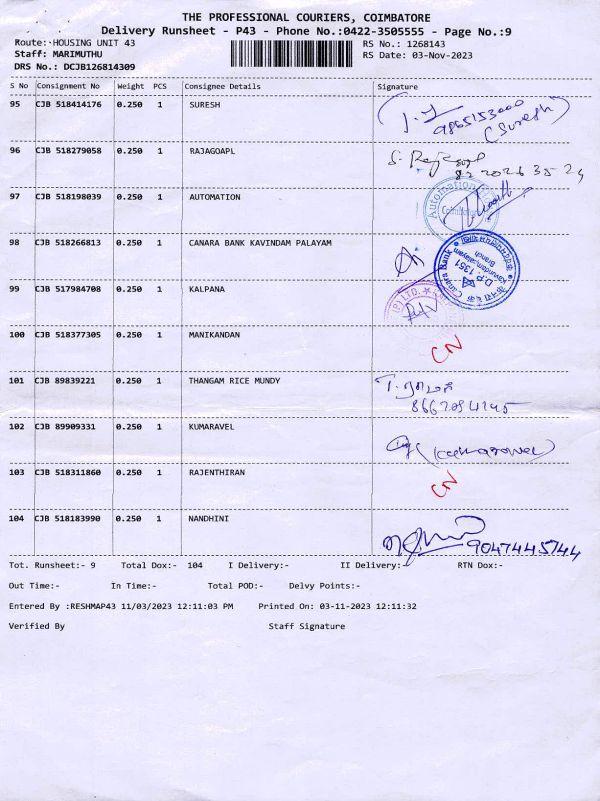 THE PROFESSIONAL COURIERS, COIMBATORE
Delivery Runsheet - P43 - Phone No.:0422-3505555 - Page No.:9
Route:-HOUSING UNIT 43
Staff: MARIMUTHU
DRS No.: DCJB126814309
RS No.: 1268143
RS Date: 03-Nov-2023
S No Consignment No Weight PCS Consignee Details Signature
95 CJB 518414176 0.250 1 SURESH
(Suresh)
96 CJB 518279058 0.250 1 RAJAGOAPL
97 CJB 518198039 0.250 1 AUTOMATION
Automation
98 CJB 518266813 0.250 1 CANARA BANK KAVINDAM PALAYAM
Canara Bank
D.P. 1351
Branch
99 CJB 517984708 0.250 1 KALPANA
(P) LTD.
100 CJB 518377305 0.250 1 MANIKANDAN
CN
101 CJB 89839221 0.250 1 THANGAM RICE MUNDY
102 CJB 89909331 0.250 1 KUMARAVEL
103 CJB 518311860 0.250 1 RAJENTHIRAN
CN
104 CJB 518183990 0.250 1 NANDHINI
9047445744
Tot. Runsheet:- 9 Total Dox:- 104 I Delivery:- II Delivery:- RTN Dox:-
Out Time:- In Time:- Total POD:- Delvy Points:-
Entered By :RESHMAP43 11/03/2023 12:11:03 PM Printed On: 03-11-2023 12:11:32
Verified By Staff Signature